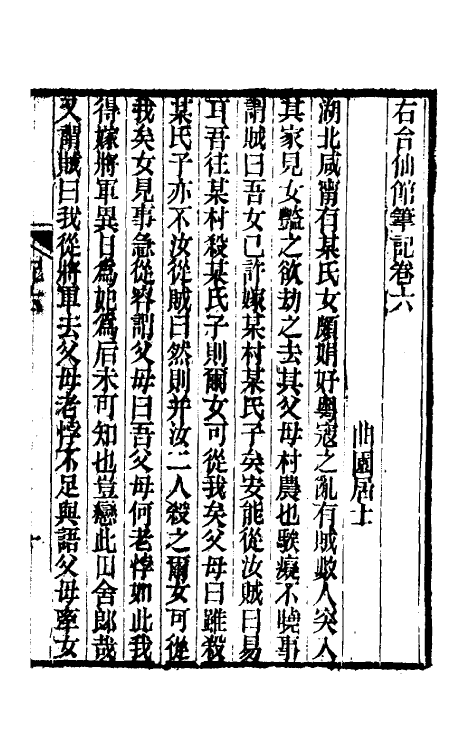 右台仙館筆記卷六
曲園居士
湖北咸甯有某氏女頗娟好粵寇之亂有賊數人突入
其家見女豔之欲劫之去其父母村農也騃癡不曉事
謂賊曰吾女已許嫁某村某氏子矣安能從汝賊曰易
耳吾往某村殺某氏子則爾女可從我矣父母曰雖殺
某氏子亦不汝從賊曰然則并汝二人殺之爾女可從
我矣女見事急從容謂父母曰吾父母何老悖如此我
得嫁將軍異日為妃為后未可知也豈戀此田舍郎哉
又謂賊曰我從將軍去父母老悖不足與語父母牽女